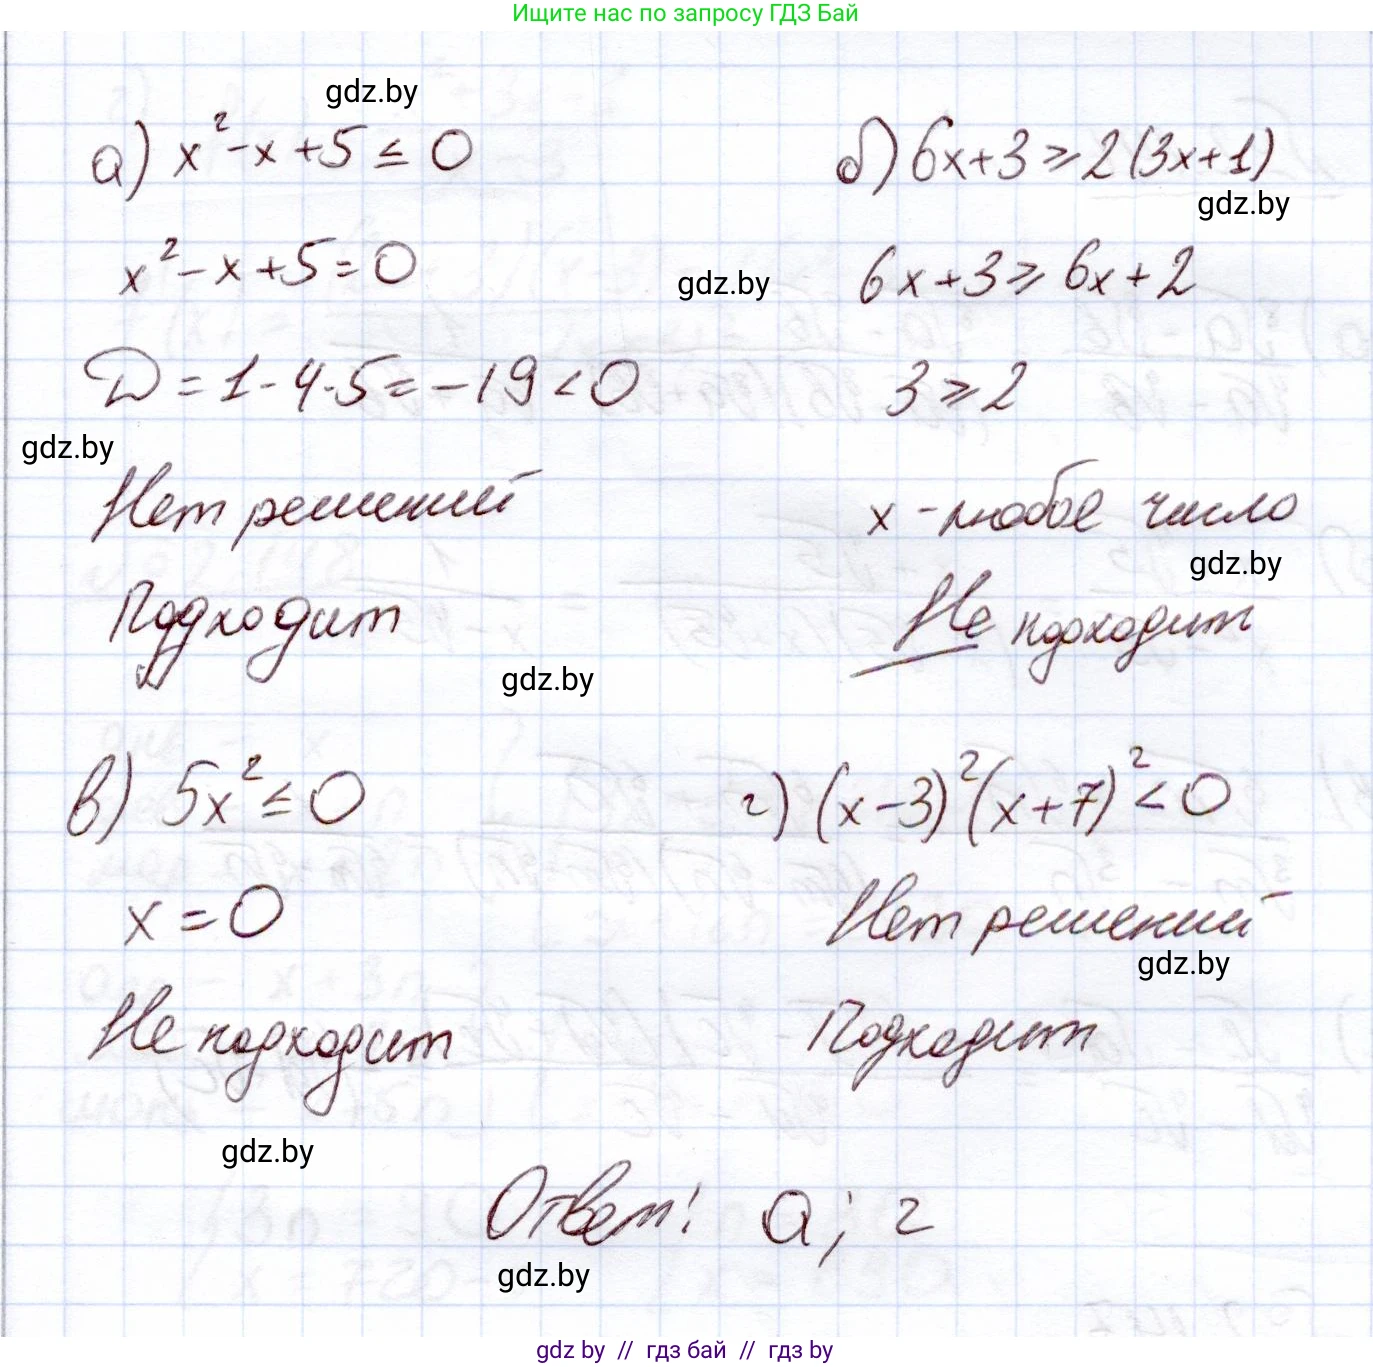 Ищите нас по запросу ГДЗ Бай
gdz.by
а) x²-x+5≤0
x²-x+5=0
D=1-4·5=-19<0
gdz.by
Нет решений
Подходит
gdz.by
б) 6x+3≥2(3x+1)
gdz.by
gdz.by
6x+3≥6x+2
3≥2
x-любое число
gdz.by
Не подходит
в) 5x²≤0
x=0
Не подходит
gdz.by
г) (x-3)²(x+7)²<0
Нет решений
gdz.by
Подходит
Ответ: а; г
gdz.by
gdz.by // гдз бай // гдз by